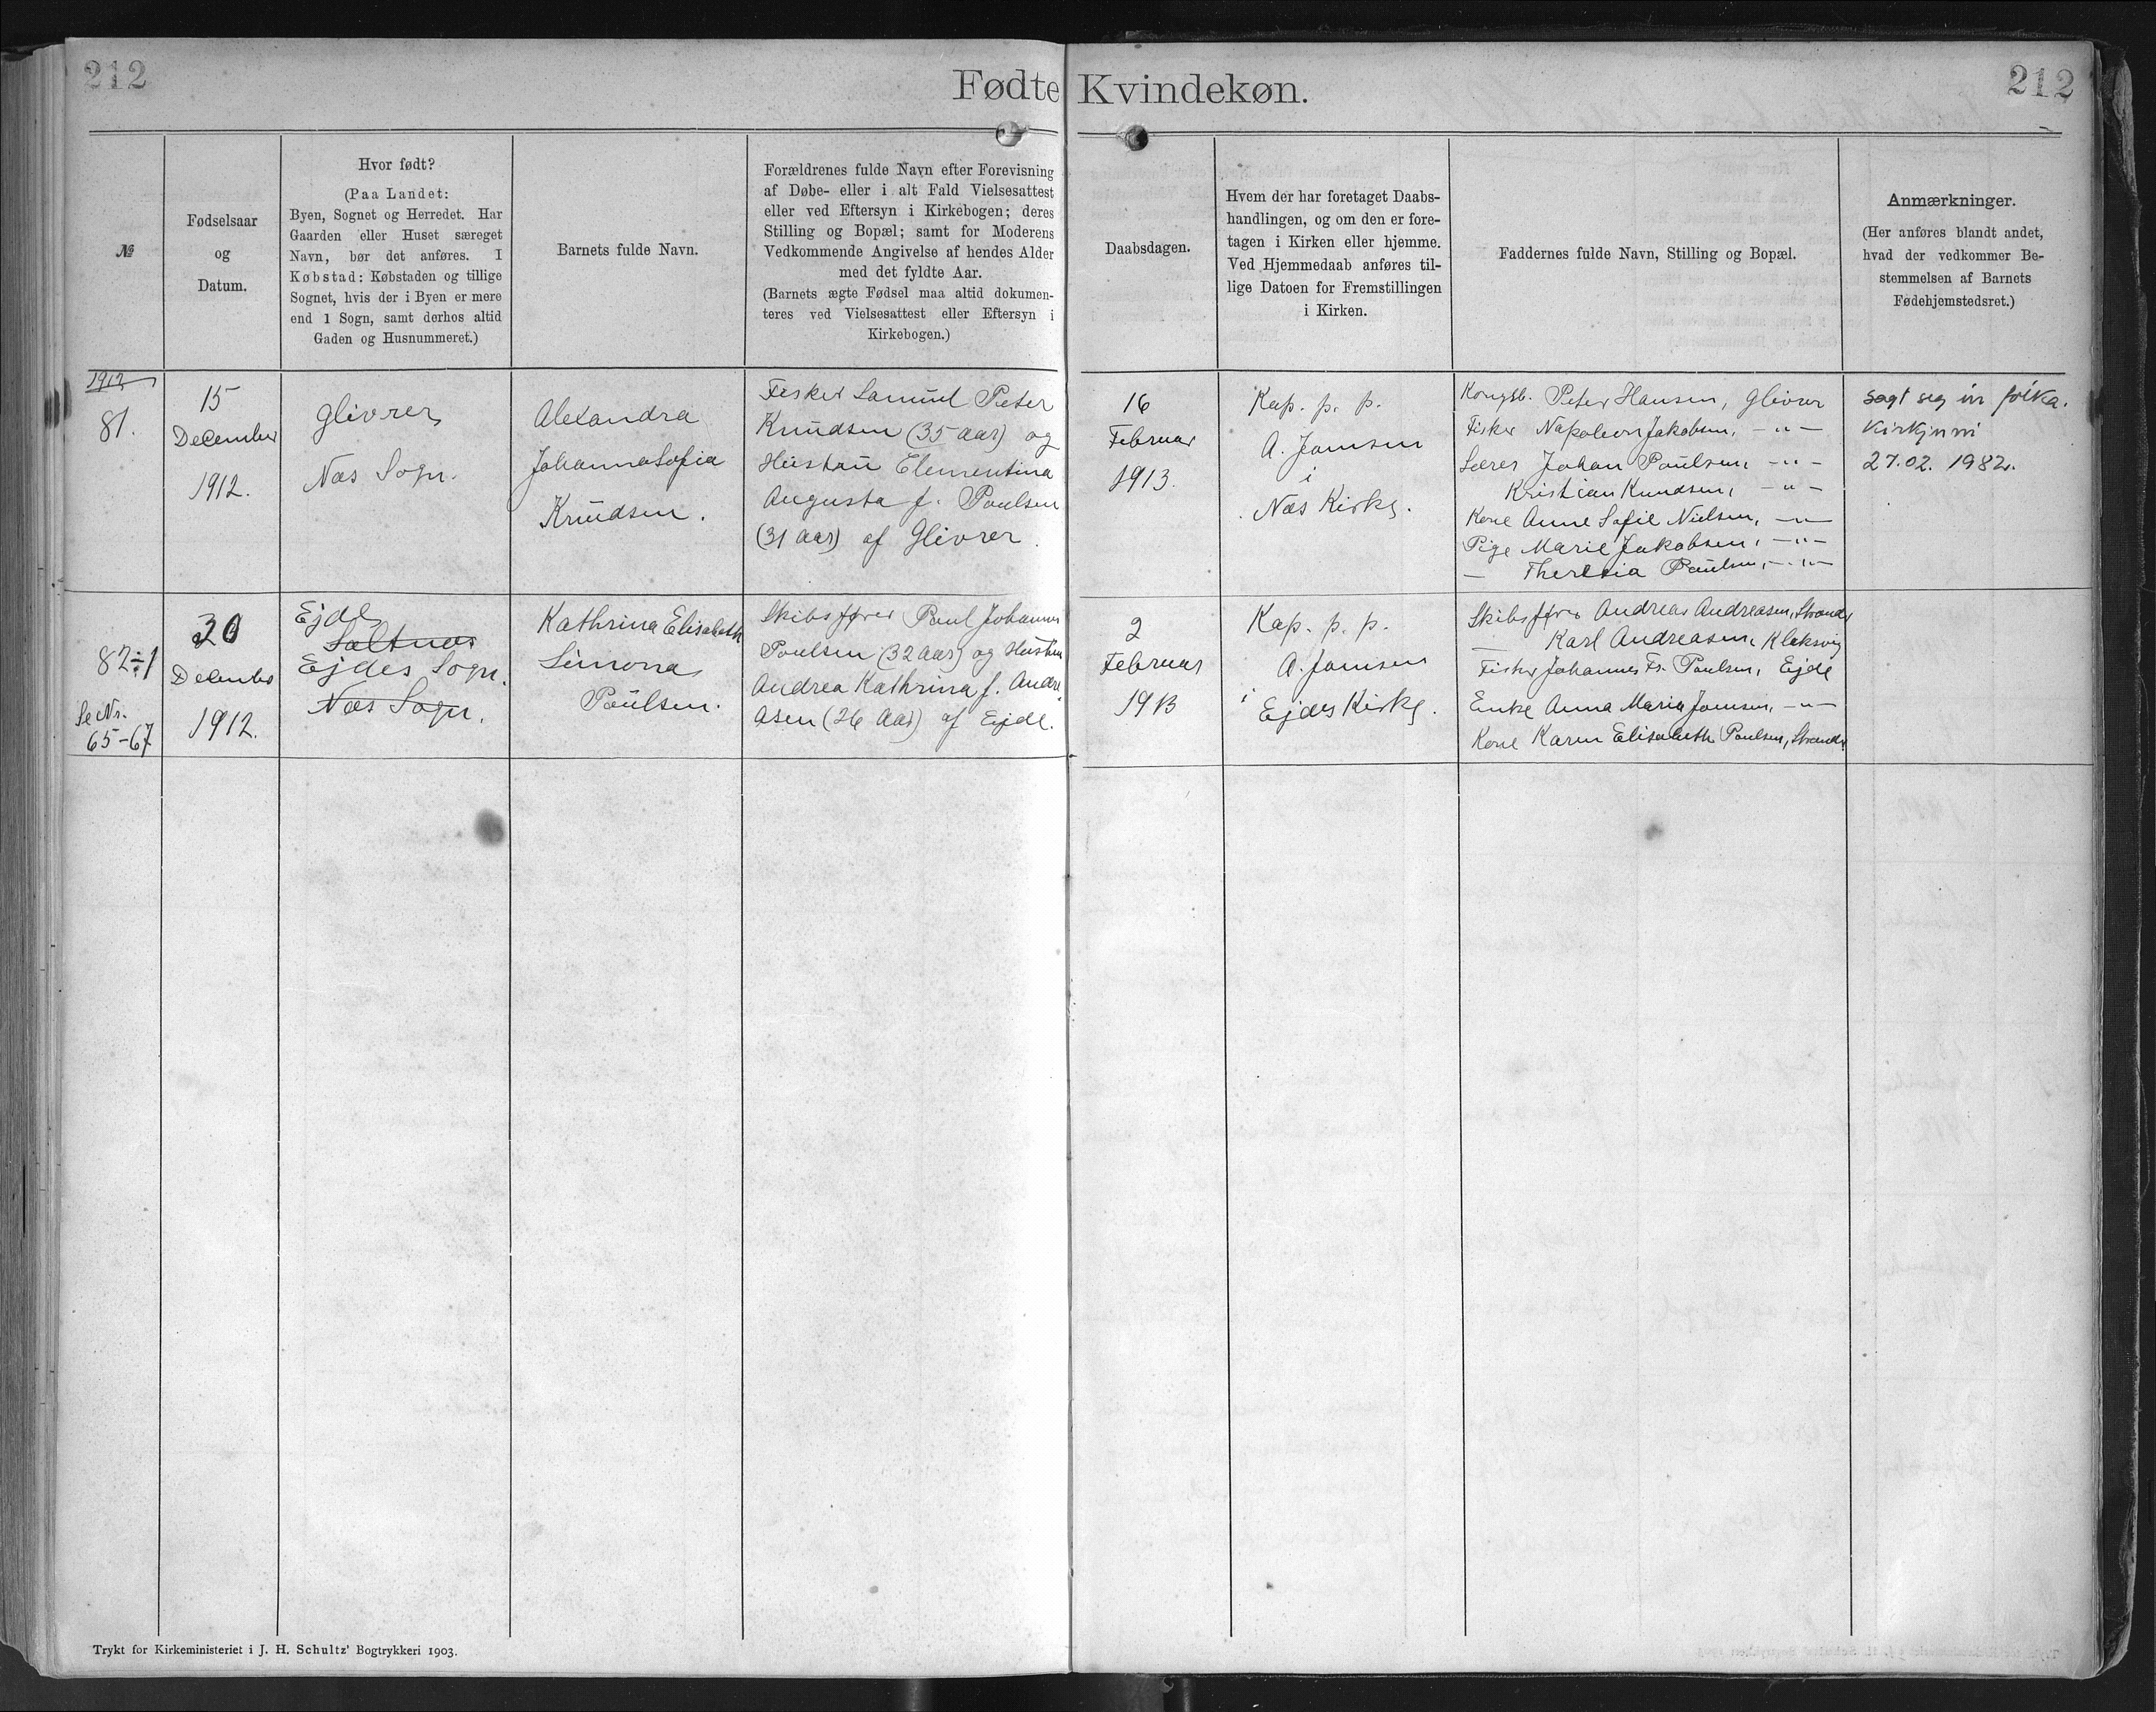 212
Fødte Kvindekøn.
212
№
Fødselsaar
og
Datum.
Hvor født?
(Paa Landet:
Byen, Sognet og Herredet. Har
Gaarden eller Huset særeget
Navn, bør det anføres. I
Købstad: Købstaden og tillige
Sognet, hvis der i Byen er mere
end 1 Sogn, samt derhos altid
Gaden og Husnummeret.)
Barnets fulde Navn.
Forældrenes fulde Navn efter Forevisning
af Døbe- eller i alt Fald Vielsesattest
eller ved Eftersyn i Kirkebogen; deres
Stilling og Bopæl; samt for Moderens
Vedkommende Angivelse af hendes Alder
med det fyldte Aar.
(Barnets ægte Fødsel maa altid dokumen-
teres ved Vielsesattest eller Eftersyn i
Kirkebogen.)
Daabsdagen.
Hvem der har foretaget Daabs-
handlingen, og om den er fore-
tagen i Kirken eller hjemme.
Ved Hjemmedaab anføres til-
lige Datoen for Fremstillingen
i Kirken.
Faddernes fulde Navn, Stilling og Bopæl.
Anmærkninger.
(Her anføres blandt andet,
hvad der vedkommer Be-
stemmelsen af Barnets
Fødehjemstedsret.)
1912
81.
15
December
1912.
Glivrer
Nas Sogn.
Alexandra
Johanna Sofia
Knudsen.
Fisker Samuel Peter
Knudsen (35 Aar) og
Hustru Clementina
Augusta f. Poulsen
(31 Aar) af Glivrer.
16
Februar
1913.
Kap. p. p.
A. Joensen
i
Nas Kirke.
Kongsb. Peter Hansen, Glivrer
Fisker Napoleon Jakobsen, -"-
Lærer Johan Poulsen, -"-
Kristian Knudsen, -"-
Kone Anne Sofie Nielsen, -"-
Pige Marie Jakobsen, -"-
— Theresia Poulsen, -"-
Sagt seg úr fólka.
kirkjuni
27.02. 1982.
82÷1
Se Nr.
65-67
30
December
1912.
Ejde
Saltnes
Ejdes Sogn.
Nas Sogn.
Kathrina Elisabeth
Simona
Poulsen.
Skibsfører Poul Johannes
Poulsen (32 Aar) og Hustru
Andrea Kathrina f. Andre
asen (26 Aar) af Ejde.
2
Februar
1913
Kap. p. p.
A. Joensen
i
Ejdes Kirke.
Skibsfører Andreas Andreasen, Strende
— Karl Andreasen, Klaksvig
Fisker Johannes Fr. Poulsen, Ejde
Enke Anna Maria Joensen, -"-
Kone Karen Elisabeth Poulsen, Strende
Trykt for Kirkeministeriet i J. H. Schultz' Bogtrykkeri 1903.